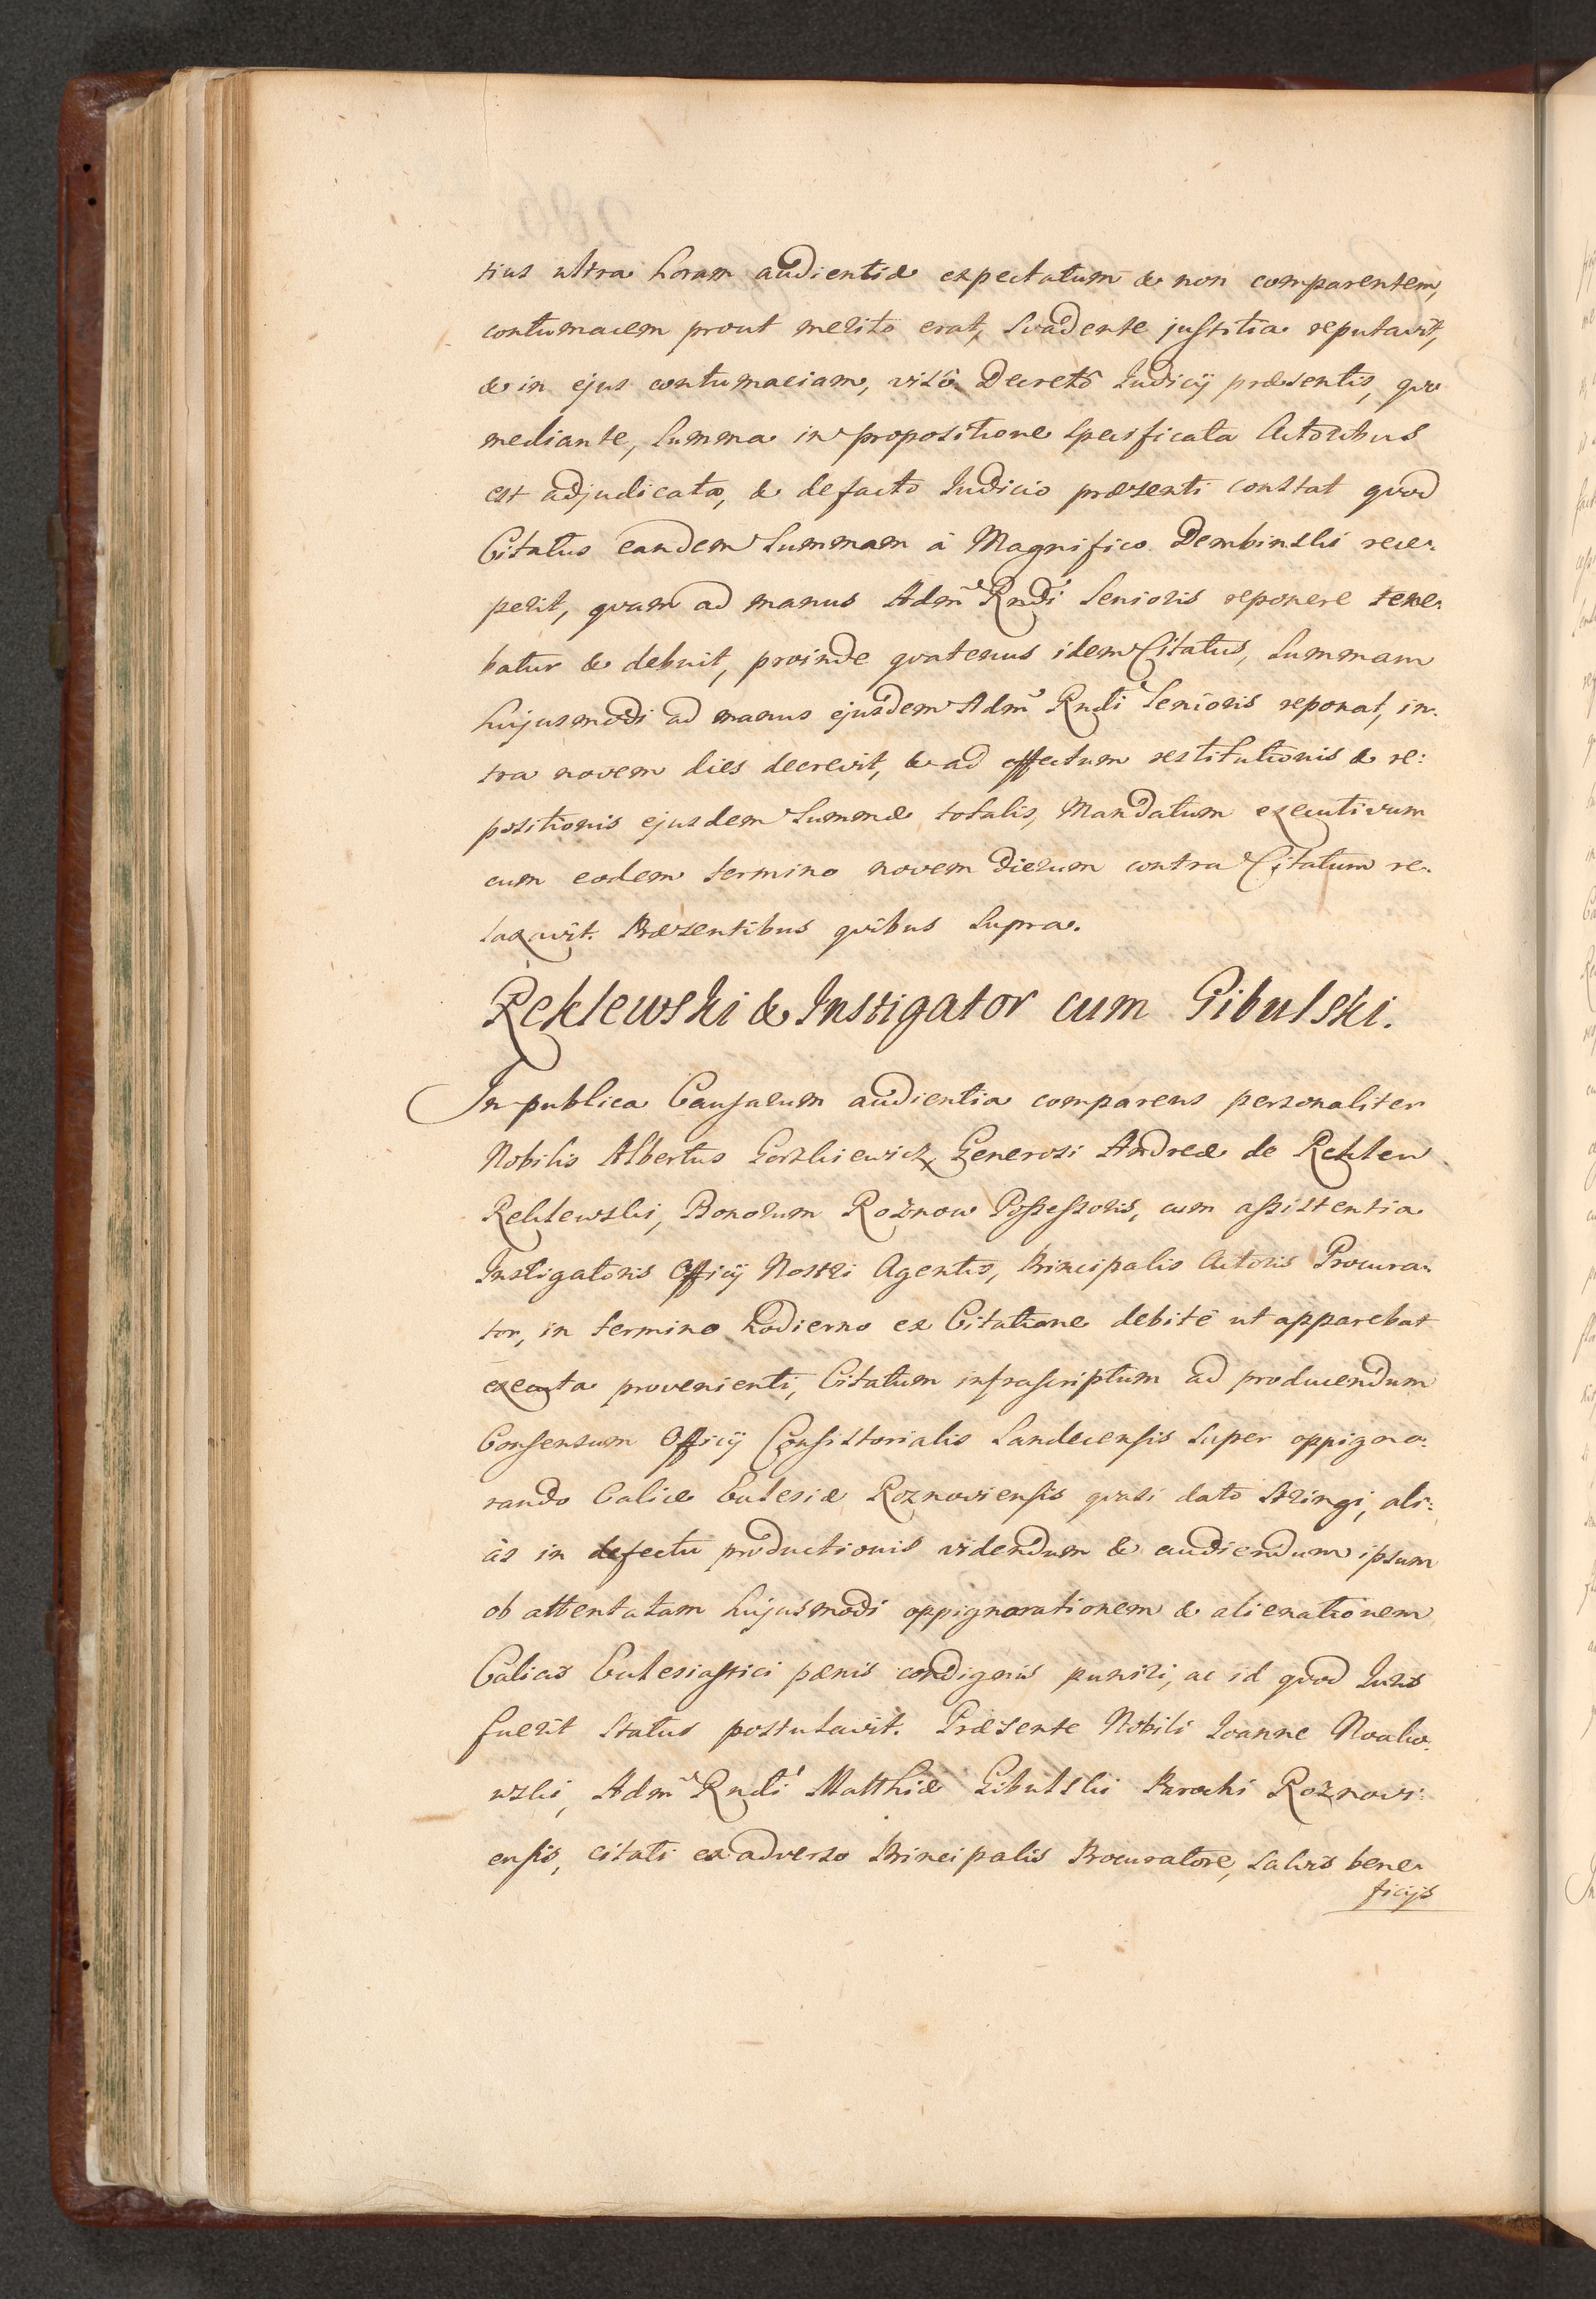 tius ultra horam audientiæ expectatum & non comparentem,
contumacem prout merito erat, svadente justitia reputavit,
& in ejus contumaciam, visô Decretô Judicij præsentis, quo
mediante, Summa in propositione specificata Actoribus
est adjudicata, & de facto Judicio præsenti constat quod
Citatus eandem Summam à Magnifico Dembinski rece:
perit, quam ad manus Adm Rndi Senioris reponere tene:
batur & debuit, proinde quatenus idem Citatus, Summam
hujusmodi ad manus ejusdem Adm Rndi Senioris reponat, in:
tra novem dies decrevit, & ad effectum restitutionis & re:
positionis ejusdem Summæ totalis, Mandatum executivum
cum eodem termino novem dierum contra Citatum re:
laxavit. Præsentibus quibus supra.
Reklewski & Instigator cum Gibulski.
In publica Causarum audientia comparens personaliter
Nobilis Albertus Gorzkiewicz Generosi Andreæ de Reklew
Reklewski, Bonorum Rożnow Possessoris, cum assistentia
Instigatoris Officij Nostri Agentis, Principalis Actoris Procura:
tor, in termino hodierno ex Citatione debitè ut apparebat
executa provenienti, Citatum infrascriptum ad producendum
Consensum Officij Consistorialis Sandecensis super oppigno:
rando Calice Ecclesiæ Roznoviensis quasi dato stringi, ali:
às in defectu productionis videndum & audiendum ipsum
ob attentatam hujusmodi oppignorationem & alienationem
Calicis Ecclesiastici pænis condignis puniri, ac id quod Juris
fuerit statui postulavit. Præsente Nobili Joanne Noako:
wski, Adm Rndi Matthiæ Gibulski Parochi Roznovi:
ensis, citati ex adverso Principalis Procuratore, salvis bene:
ficijs